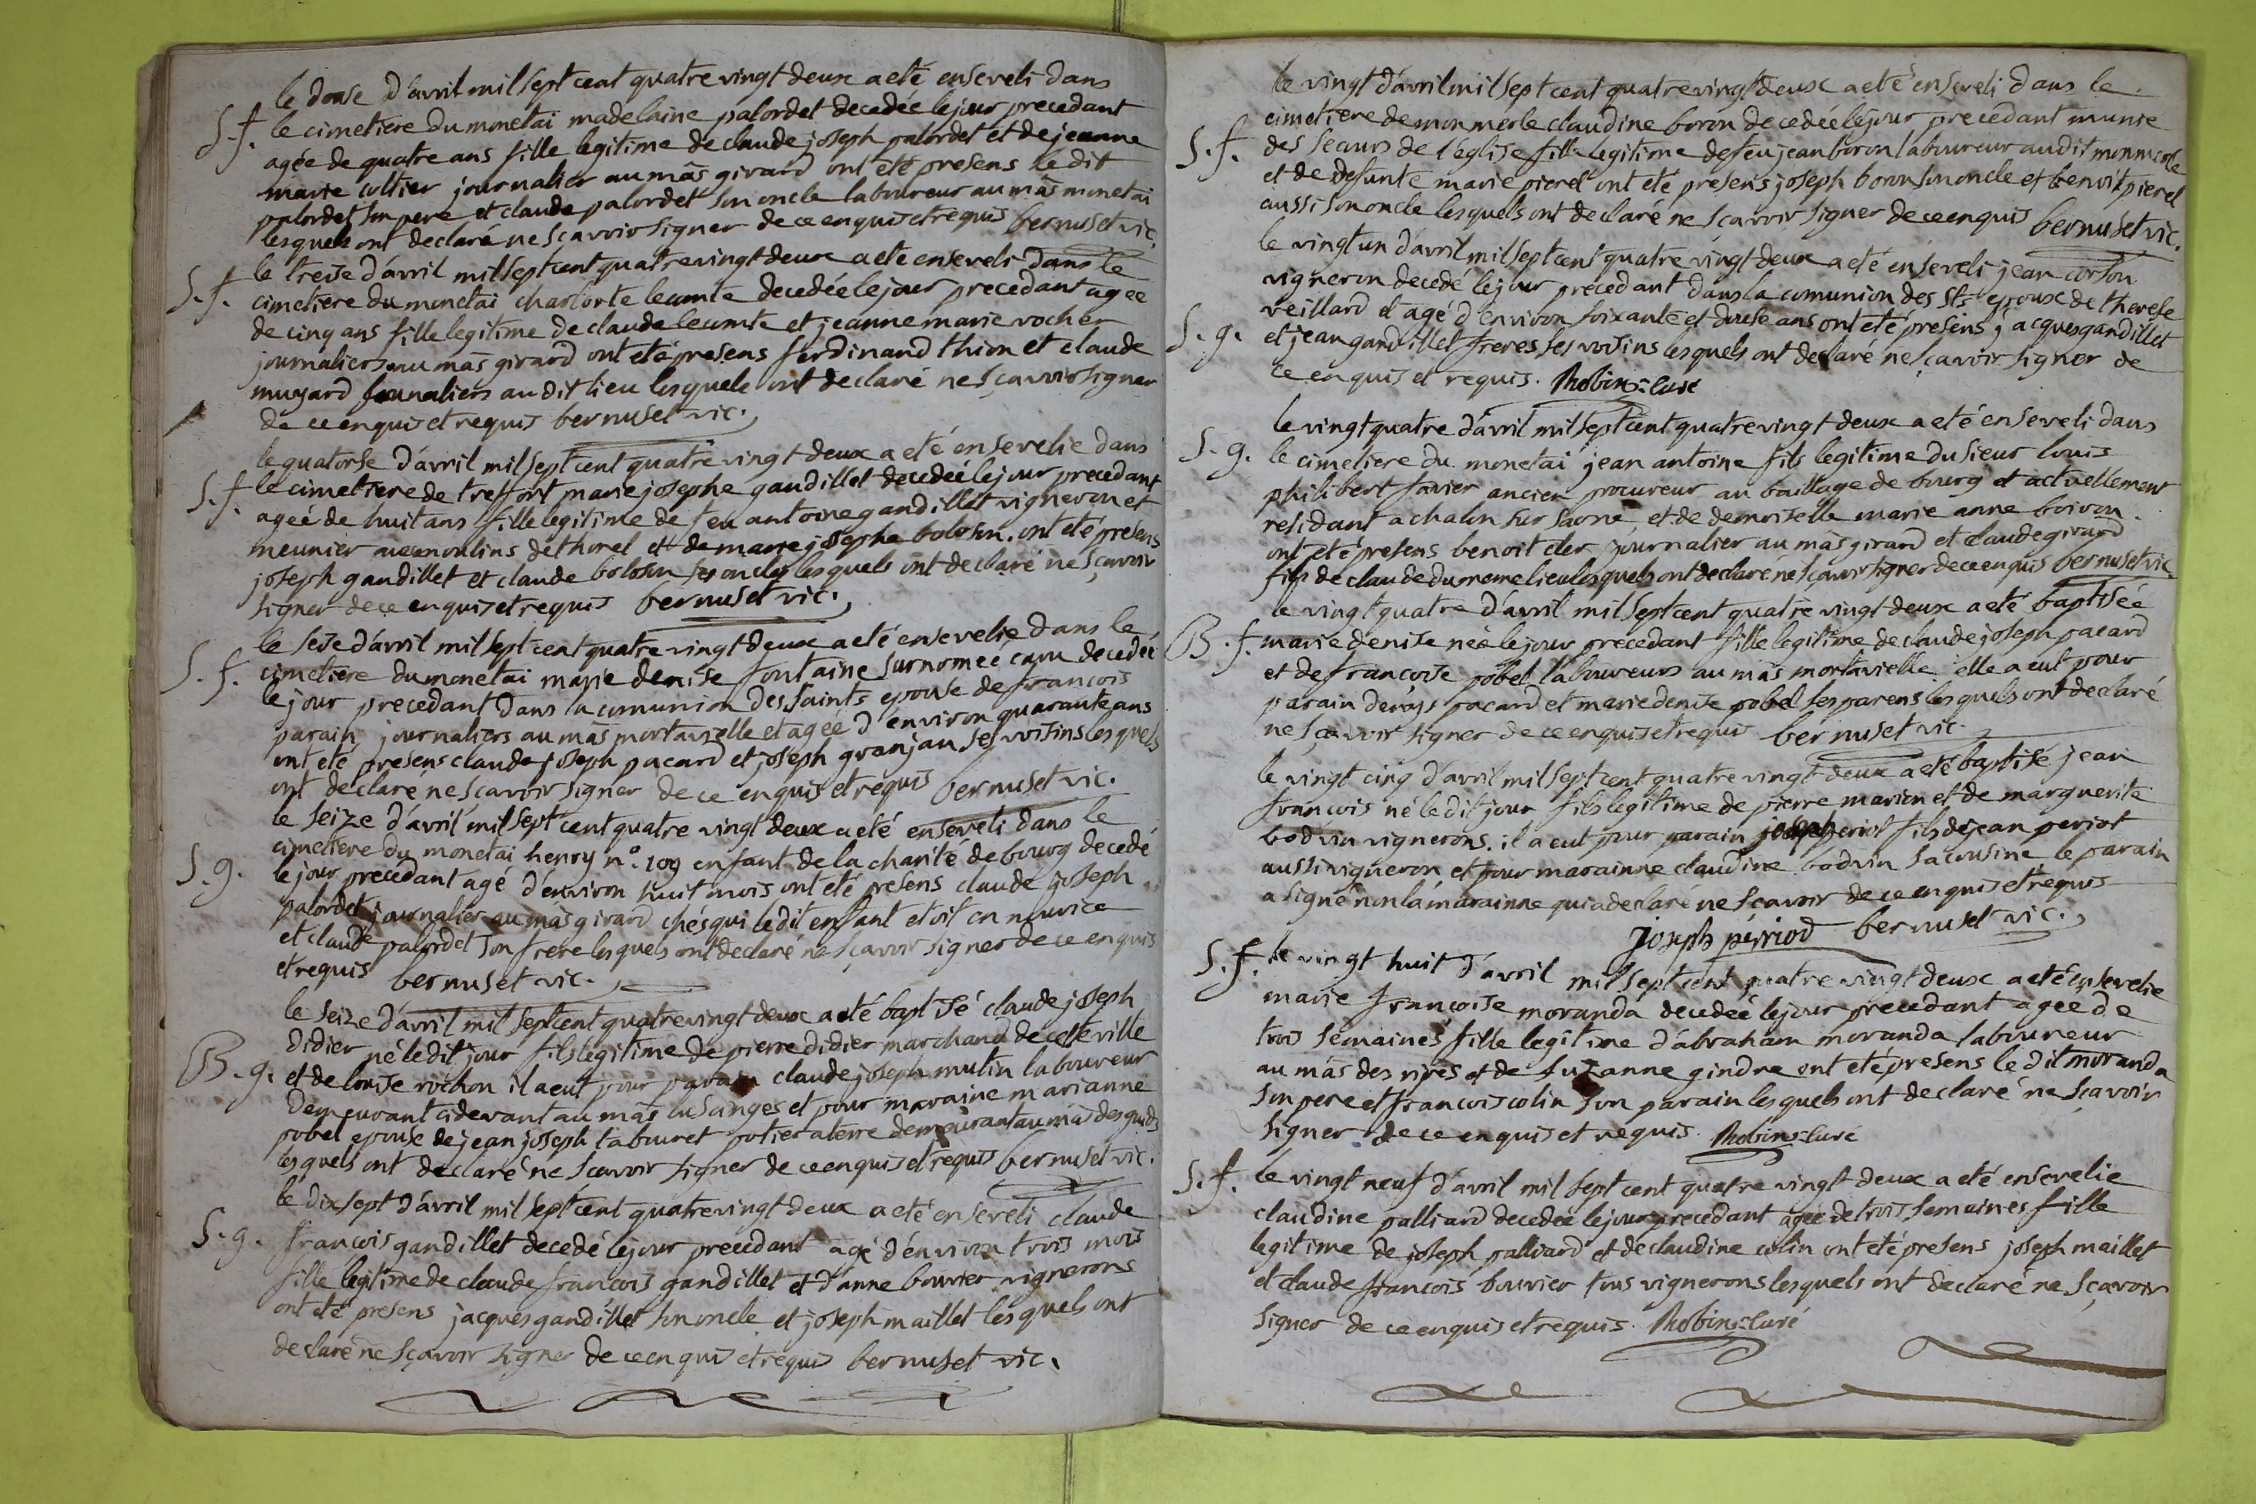 le douse d'avril mil sept cent quatre vingt deux a eté enseveli dans
S. f. le cimetiere du monetai madelaine palordet decedée le jour precedant
agée de quatre ans fille legitime de claude joseph palordet et de jeanne
marie coltier journalier au mâs girard ont eté presens le dit
palordet son pere et claude palordet son oncle laboureur au mâs monetai
lesquels ont declaré ne sçavoir signer de ce enquis et requis bernuset vic.
le treise d'avril mil sept cent quatre vingt deux a eté enseveli dans le
S. f. cimetiere du monetai charlorte lecomte decedée le jour precedant agée
de cinq ans fille legitime de claude lecomte et jeanne marie rocher
journaliers au mâs girard ont eté presens ferdinand thion et claude
mugard journaliers au dit lieu lesquels ont declaré ne sçavoir signer
de ce enquis et requis bernuset vic.
le quatorse d'avril mil sept cent quatre vingt deux a eté ensevelie dans
S. f. le cimetiere de treffort marie josephe gandillet decedée le jour precedant
ageé de huit ans fille legitime de feu antoine gandillet vigneron et
meunier aux moulins de thorel et de marie josephe bolosin. ont eté presens
joseph gandillet et claude bolosin ses oncles lesquels ont declaré ne sçavoir
signer de ce enquis et requis bernuset vic.
le seise d'avril mil sept cent quatre vingt deux a eté ensevelie dans le
S. f. cimetiere du monetai marie denise fontaine surnomeé decedée
le jour precedant dans la comunion des saints epouse de francois
parain journaliers au mâs mortavielle et agée d'environ quarante ans
ont eté presens claude joseph pacard et joseph granjan ses voisins lesquels
ont declaré ne sçavoir signer de ce enquis et requis bernuset vic.
le seize d'avril mil sept cent quatre vingt deux a eté enseveli dans le
cimetiere du monetai henry n°. 109 enfant de la charité de bourg decedé
S. g. le jour precedant agé d'environ huit mois ont eté presens claude joseph
palordet journalier au mâs girard chés qui le dit enfant etoit en nourice
et claude palordet son frere lesquels ont declaré ne sçavoir signer de ce enquis
et requis bernuset vic.
le seize d'avril mil sept cent quatre vingt deux a eté baptisé claude joseph
didier né le dit jour fils legitime de pierre didier marchand de cette ville
B. g. et de louise rochon il a eut pour parain claude joseph mutin laboureur
demeurant cidevant au mâs lusanges et pour maraine marianne
pobel epouse de jean joseph tabouret potier a terre demeurant au mas des
lesquels ont declaré ne sçavoir signer de ce enquis et requis bernuset vic.
le dix sept d'avril mil sept cent quatre vingt deux a eté enseveli claude
S. g. francois gandillet decedé le jour precedant agé d'environ trois mois
fille legitime de claude francois gandillet et d'anne bouvier vignerons
ont eté presens jacques gandillet son oncle et joseph maillet lesquels ont
declaré ne sçavoir signer de ce enquis et requis bernuset vic.
le vingt d'avril mil sept cent quatre vingt deux a eté enseveli dans le
cimetiere de monmerle claudine boron decedeé le jour precedant munie
S. f. des secours de l'eglise fille legitime de feu jean boron laboureur au dit monmerle
et de defunte marie pierel ont eté presens joseph boron son oncle et benoit pierel
aussi son oncle lesquels ont declaré ne sçavoir signer de ce enquis bernuset vic.
le vingt un d'avril mil sept cent quatre vingt deux a eté enseveli jean corson
vigneron decedé le jour precedant dans la comunion des sts epoux de therese
veillard et agé d'environ soixante et douse ans ont eté presens jacques gandillet
S. g. et jean gandillet freres ses voisins lesquels ont declaré ne sçavoir signer de
ce enquis et requis. Robin=curé
le vingt quatre d'avril mil sept cent quatre vingt deux a eté enseveli dans
S. g. le cimetiere du monetai jean antoine fils legitime du sieur louis
philibert favier ancien procureur au baillage de bourg et actuellement
residant a chalon sur saone et de demoiselle marie anne boiron.
ont eté presens benoit cler journalier au mâs girard et claude girard
fils de claude du meme lieu lesquels ont declaré ne sçavoir signer de ce enquis bernuset vic.
le vingt quatre d'avril mil sept cent quatre vingt deux a eté baptisée
B. f. marie denise née le jour precedant fille legitime de claude joseph pacard
et de francoise pobel laboureurs au mâs mortavielle elle a eut pour
parain denys pacard et marie denise pobel ses parens lesquels ont declaré
ne sçavoir signer de ce enquis et requis bernuset vic.
le vingt cinq d'avril mil sept cent quatre vingt deux a eté baptisé jean
francois né le dit jour fils legitime de pierre marion et de marguerite
bodvin vignerons. il a eut pour parain joseph periot fils de jean periot
aussi vigneron et pour marainne claudine bodvin sa cousine le parain
a signé non la marainne qui a declaré ne sçavoir de ce enquis et requis
Joseph perriod bernuset vic.
S. f. le vingt huit d'avril mil sept cent quatre vingt deux a eté ensevelie
marie francoise moranda decedeé le jour precedant agée de
trois semaines fille legitime d'abraham moranda laboureur
au mâs des ripes et de suzanne gindre ont eté presens le dit moranda
son pere et francois colin son parain lesquels ont declaré ne sçavoir
signer de ce enquis et requis. Robin=curé
S. f. le vingt neuf d'avril mil sept cent quatre vingt deux a eté ensevelie
claudine palliard decedée le jour precedant agée de trois semaines fille
legitime de joseph palliard et de claudine colin ont eté presens joseph maillet
et claude francois bouvier tous vignerons lesquels ont declaré ne sçavoir
signer de ce enquis et requis. Robin=curé